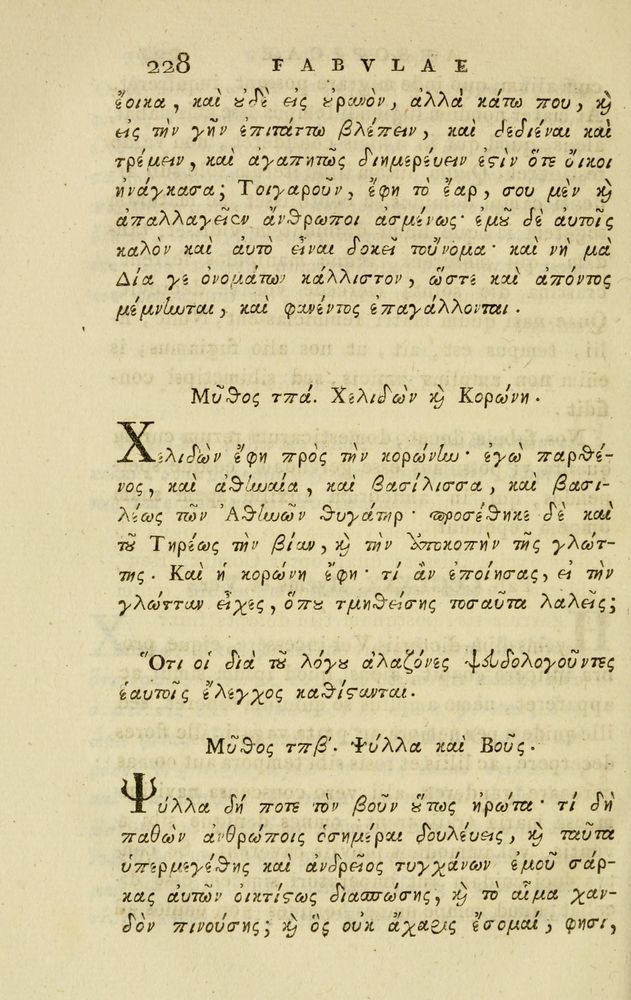 228 FABVLAE
ἔοικα, καὶ ȣδὲ εἰς ȣ̓ρανὸν, ἀλλὰ κάτω που, ϗ
εἰς τὴν γῆν ἐπιτάττω βλέπειν, καὶ δεδιέναι καὶ
τρέμειν, καὶ ἀγαπητῶς διημερέυειν ἐϛὶν ὅτε ὄικοι
ἠνάγκασα; Τοιγαροῦν, ἔφη τὸ ἔαρ, σου μὲν ϗ
ἀπαλλαγεῖεν ἄνθρωποι ἀσμένως· ἐμȣ͂ δὲ ἀυτοῖς
καλὸν καὶ ἀυτὸ εἶναι δοκεῖ τοὔνομα· καὶ νὴ μὰ
Δία γε ὀνομάτων κάλλιστον, ὥστε καὶ ἀπόντος
μέμνηνται, καὶ φανέντος ἐπαγάλλονται.
Μῦθος τπά. Χελιδὼν ϗ Κορώνη.
Χελιδὼν ἔφη πρὸς τὴν κορώνην· ἐγὼ παρθέ-
νος, καὶ ἀθηναία, καὶ βασίλισσα, καὶ βασι-
λέως τῶν Ἀθηνῶν θυγάτηρ· προσέθηκε δὲ καὶ
τȣ͂ Τηρέως τὴν βίαν, ϗ τὴν ὑποκοπὴν τῆς γλώτ-
της. Καὶ ἡ κορώνη ἔφη· τί ἂν ἐποίησας, εἰ τὴν
γλώτταν εἶχες, ὅπȣ τμηθείσης τοσαῦτα λαλεῖς;
Ὅτι οἱ διὰ τȣ͂ λόγȣ ἀλαζόνες ψευδολογοῦντες
ἑαυτοῖς ἔλεγχος καθίϛανται.
Μῦθος τπβ́. Ψύλλα καὶ Βοῦς.
Ψύλλα δή ποτε τὸν βοῦν ȣ̔́τως ἠρώτα· τί δὴ
παθὼν ἀνθρώποις ὁσημέραι δουλέυεις, ϗ ταῦτα
ὑπερμεγέθης καὶ ἀνδρεῖος τυγχάνων ἐμοῦ σάρ-
κας ἀυτῶν οἰκτίϛως διασπώσης, ϗ τὸ αἷμα χαν-
δὸν πινούσης; ϗ ὃς οὐκ ἄχαρις ἔσομαί, φησι,